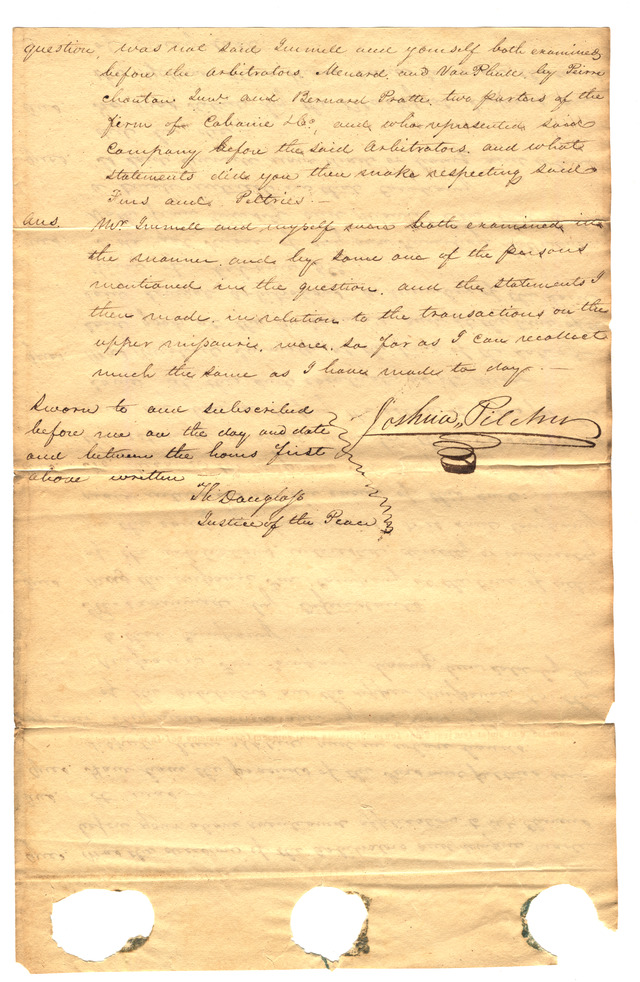 question, was not said Immell and yourself both examined
before the arbitrators, Menard, and Von Phull, by Pierre
chouteau Junr. and Bernard Pratte, two partors of the
firm of Cabanie &Co, and who represented said
company before the said Arbitrators. and what
statements did you then make respecting said
Furs and Peltries.—
ans. Mr Immell and myself were both examined in
the manner, and by some one of the persons
mentioned in the question. and the statements I
then made, in relation to the transactions on the
upper missouri, were, so far as I can recollect
much the same as I have made to day. —
Sworn to and subscribed
before me on the day and date
and between the hours first
above written
Joshua Pilcher
Th Douglass
Justice of the Peace